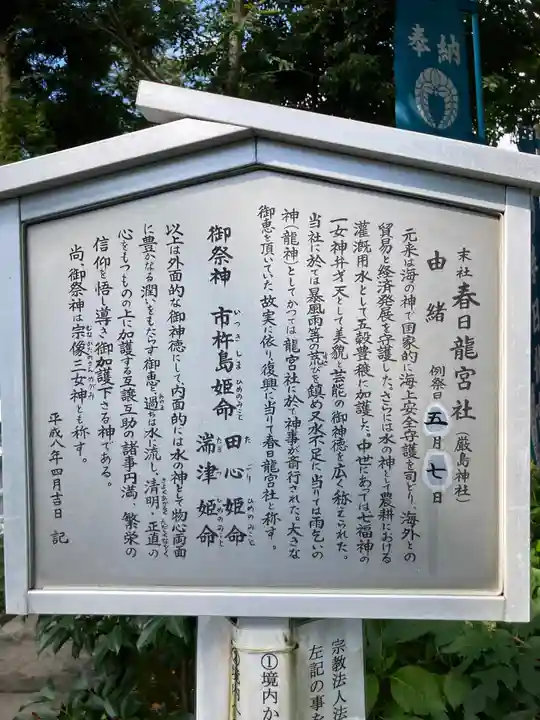 奉納
末社 春日龍宮社（厳島神社）
由緒 例祭日 五月七日
元来は海の神で国家的に海上安全守護を司どり、海外との
貿易と経済発展を守護した。さらには水の神として農耕における
灌漑用水として五穀豊穣に加護した。中世にあっては七福神の
一女神弁才天として美貌と芸能の御神徳を広く称えられた。
当社に於ては暴風雨等の荒びを鎮め又水不足に当りては雨乞いの
神（龍神）としてかつては龍宮社に於て神事が斎行された。大きな
御恵を頂いていた故実に依り復興に当りて春日龍宮社と称す。
御祭神 市杵島姫命 田心姫命 湍津姫命
いつきしまひめのみこと たごりひめのみこと たぎつひめのみこと
以上は外面的な御神徳にして、内面的には水の神として物心両面
に豊かなる潤いをもたらす御恵と過ちは水に流し、清明・正直の
心をもつものの上に加護する互譲互助の諸事円満、繁栄の
信仰を悟し導き御加護下さる神である。
尚、御祭神は宗像三女神とも称す。
平成八年四月吉日 記
宗教法人法
左記の事を
①境内か